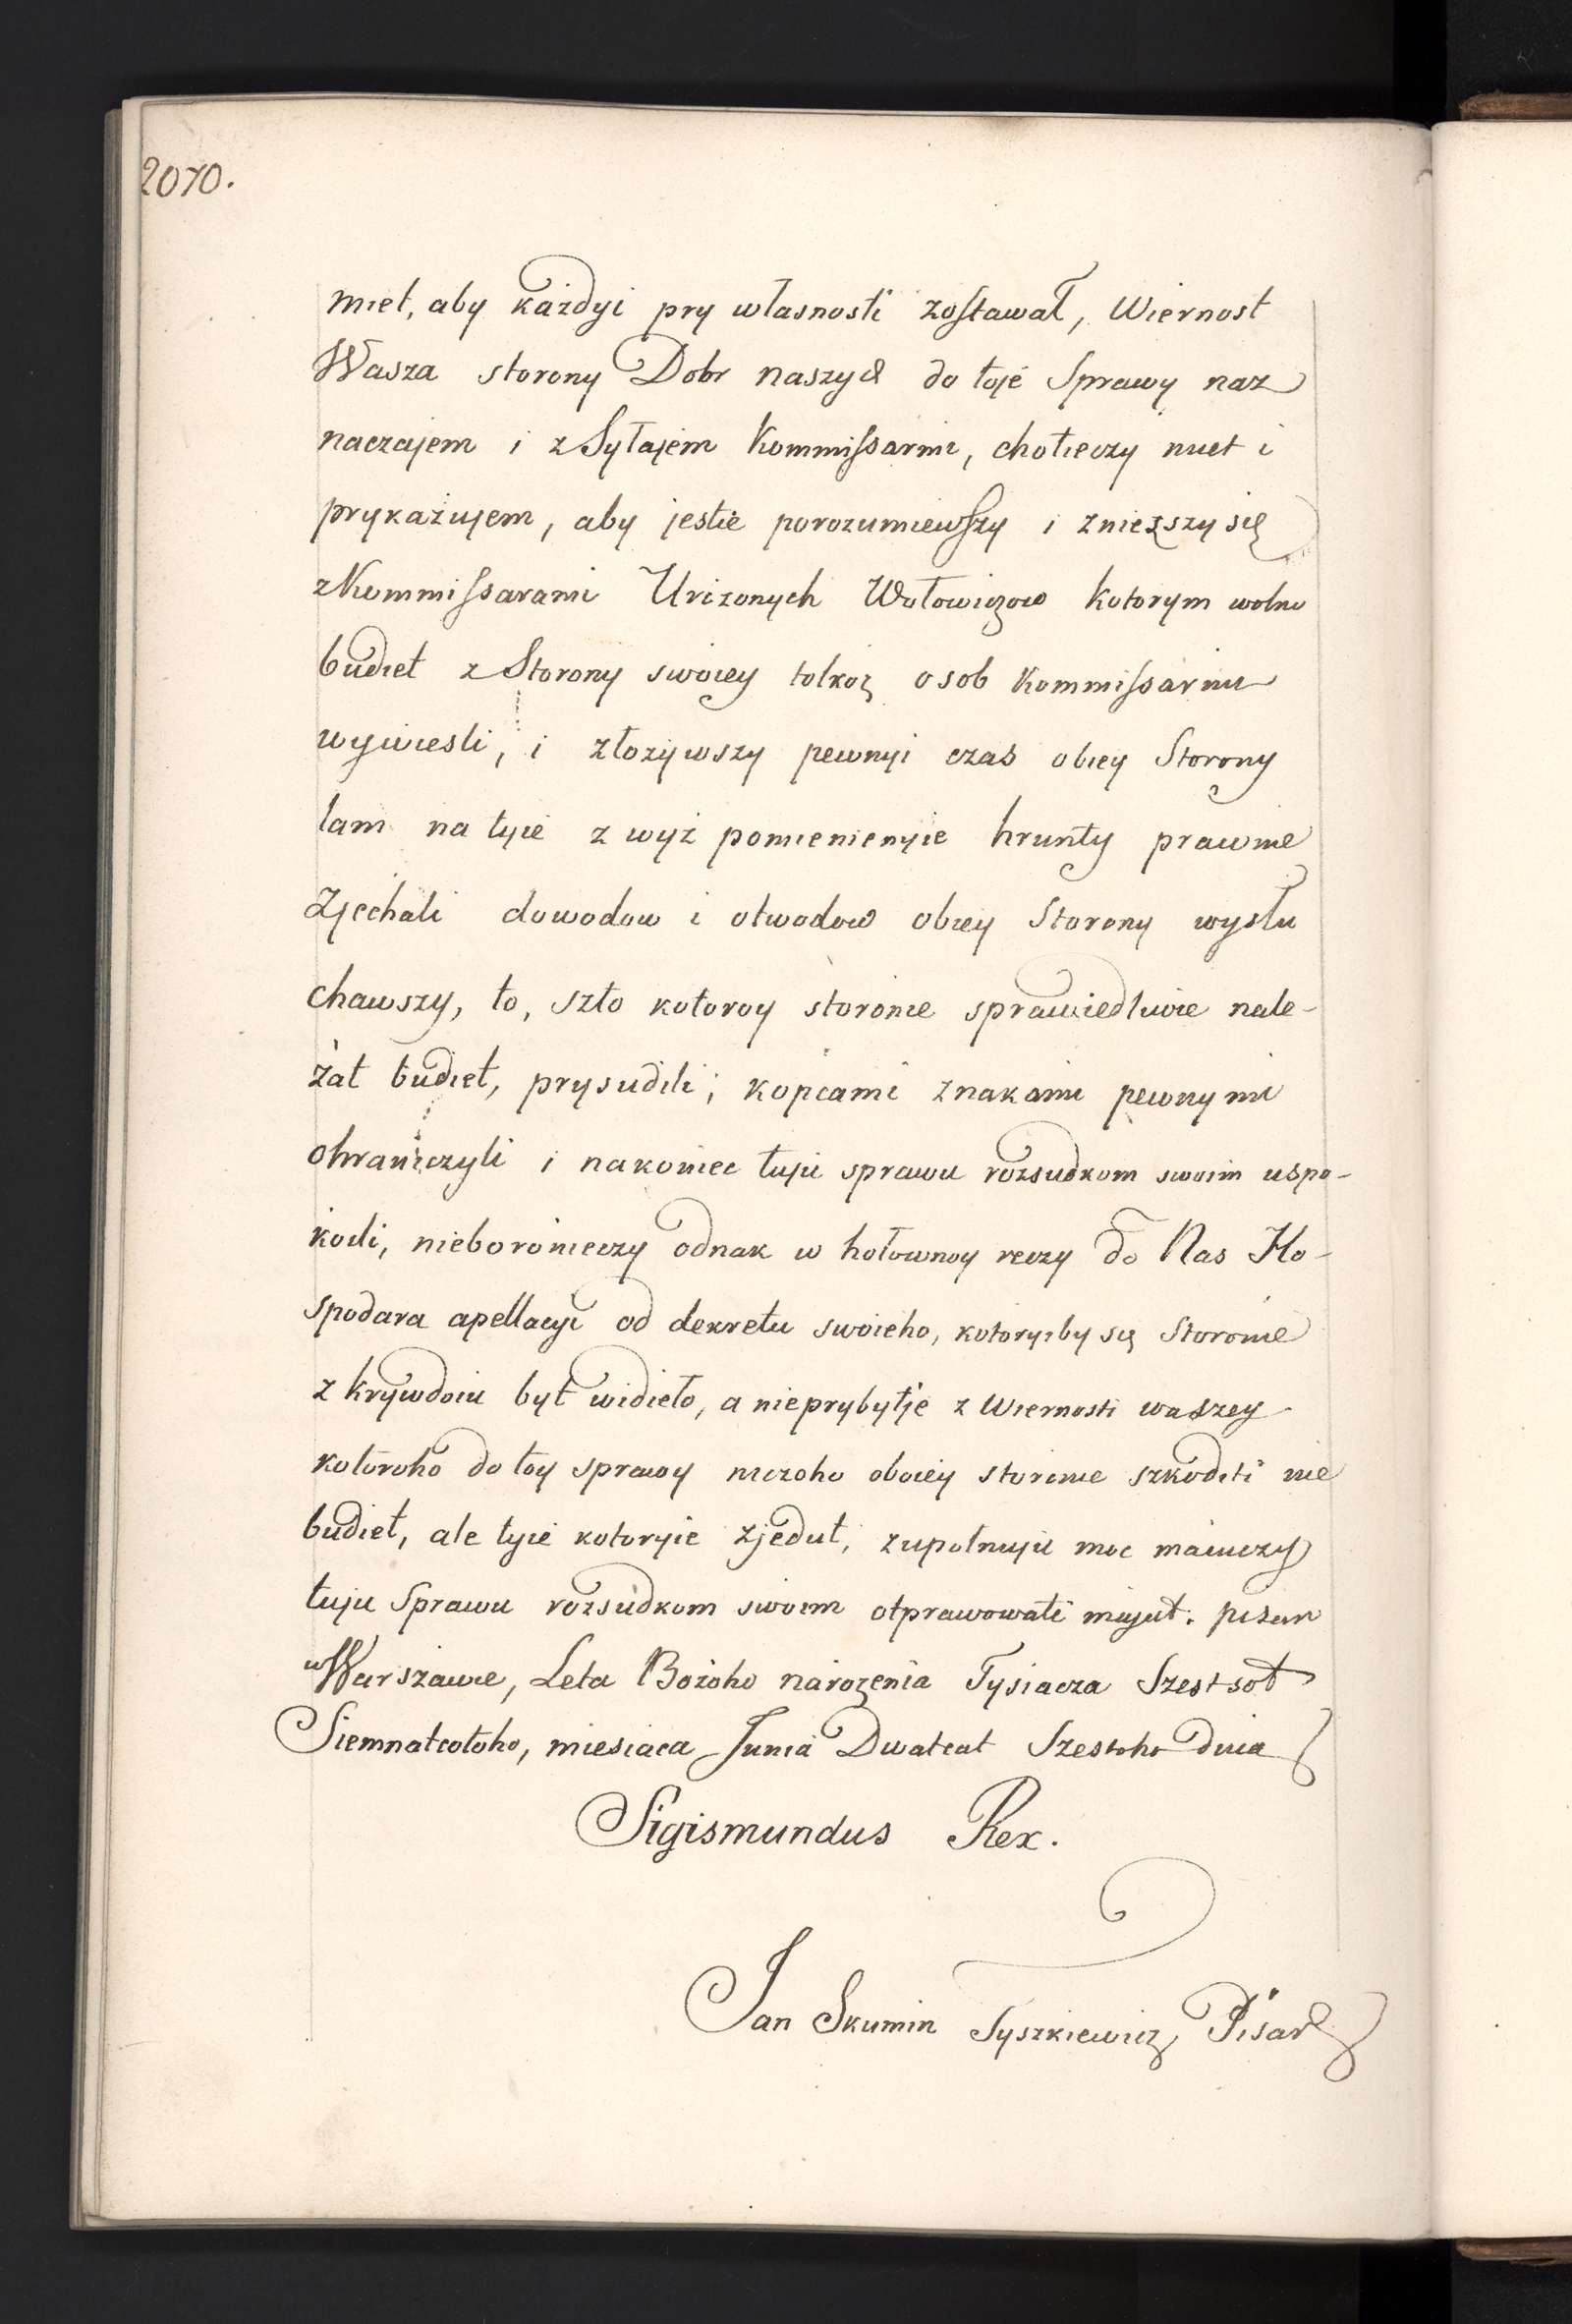 2070.
miet, aby każdyi pry własnosti zostawał, Wiernost
Wasza storony Dobr naszych do toje Sprawy naz
naczajem i zSyłajem Kommissarmi, chotieczy miet i
prykażujem, aby jestie porozumiewszy i zniezszy się
zKommissarami Urizonych Wołowiczow kotorym wolno
budiet z Storony swoiey tolkoż osob Kommissarmi
wywiesti, i złożywszy pewnyi czas obiey Storony
tam na tyie z wyż pomienienyie hrunty prawnie
Zjechali dowodow i otwodow obiey Storony wysłu
chawszy, to, szto kotoroy storonie sprawiedliwie nale-
żat budiet, prysudili; kopcami znakami pewnymi
ohraniczyli i nakoniec tuju sprawu rozsudkom swoim uspo-
koili, nieboronieczy odnak w hołownoy reczy do Nas Ho-
spodara apellacyi od dekretu swoieho, kotoryiby się Storonie
z krywdoiu byt widieło, a nieprybytje z Wiernosti waszey
kotoroho do toy sprawy niczoho oboiey storonie szkoditi nie
budiet, ale tyie kotoryie zjedut, zupołnuju moc maiuczy
tuju Sprawu rozsudkom swoim otprawowati majut. pisan
w Warszawie, Leta Bożoho narożenia Tysiacza Szestsot
Siemnatcotoho, miesiaca Junia Dwatcat Szestoho dnia
Sigismundus Rex.
Jan Skumin Tyszkiewicz Pisar